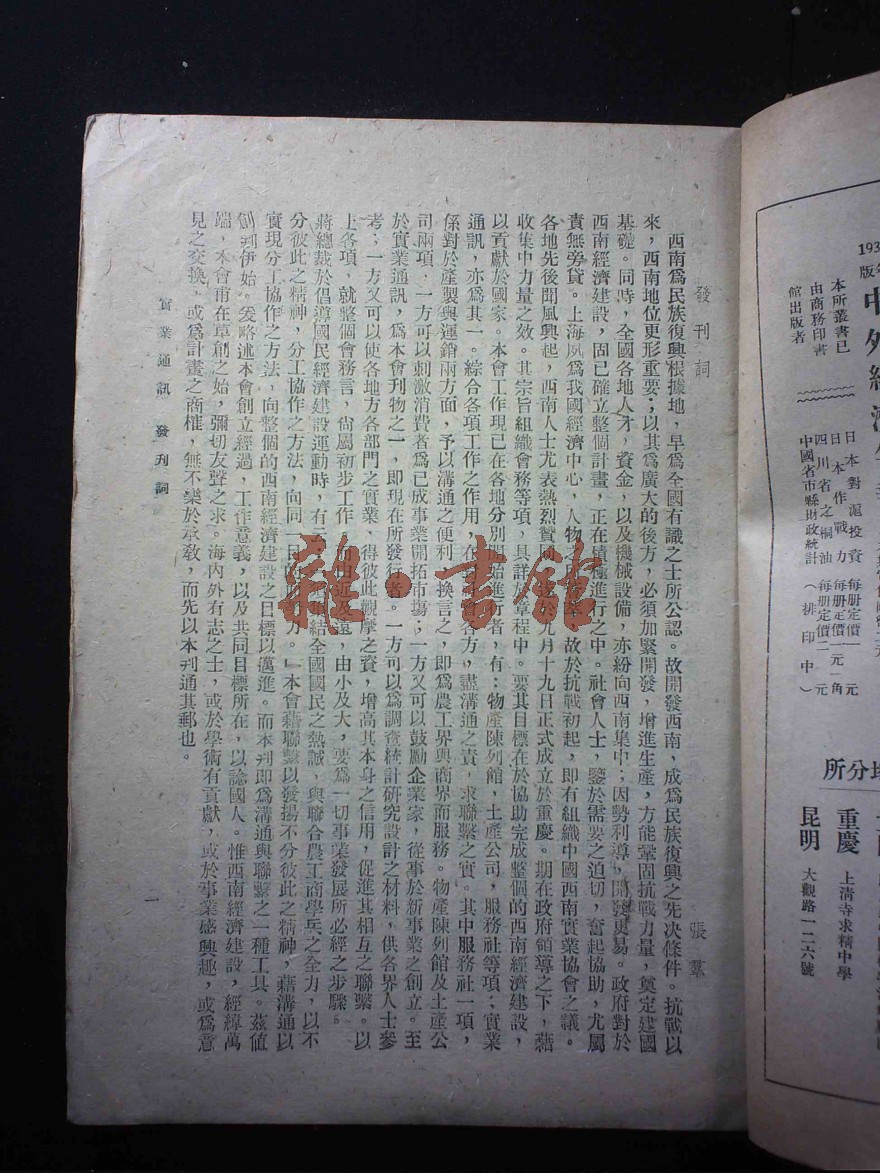 發刊詞
張羣
西南爲民族復興根據地，早爲全國有識之士所公認。故開發西南，成爲民族復興之先決條件。抗戰以
來，西南地位更形重要；以其爲廣大的後方，必須加緊開發，增進生產，方能鞏固抗戰力量，奠定建國
基礎。同時，全國各地人才，資金，以及機械設備，亦紛向西南集中；因勢利導，開發更易。政府對於
西南經濟建設，固已確立整個計畫，正在積極進行之中。社會人士，鑒於需要之迫切，奮起協助，尤屬
責無旁貸。上海夙爲我國經濟中心，人物之，故於抗戰初起，即有組織中國西南實業協會之議。
各地先後聞風興起，西南人士尤表熱烈贊同，於九月十九日正式成立於重慶。期在政府領導之下，藉
收集中力量之效。其宗旨組織會務等項，具詳於章程中。要其目標在於協助完成整個的西南經濟建設，
以貢獻於國家。本會工作現已在各地分別開始進行者，有：物產陳列館，土產公司，服務社等項；實業
通訊，亦爲其一。綜合各項工作之作用，在對社會各方，盡溝通之責，求聯繫之實。其中服務社一項，
係對於產製與運銷兩方面，予以溝通之便利，換言之，即爲農工界與商界而服務。物產陳列館及土產公
司兩項，一方可以刺激消費者爲已成事業開拓市場；一方又可以鼓勵企業家，從事於新事業之創立。至
於實業通訊，爲本會刊物之一，即現在所發行者。一方可以爲調查統計研究設計之材料，供各界人士參
考；一方又可以使各地方各部門之實業，得彼此觀摩之資，增高其本身之信用，促進其相互之聯繫。以
上各項，就整個會務言，尚屬初步工作，而由近及遠，由小及大，要爲一切事業發展所必經之步驟。
蔣總裁於倡導國民經濟建設運動時，有云：結全國國民之熱誠，與聯合農工商學兵之全力，以不
分彼此之精神，分工協作之方法，向同一目的力。」本會藉聯繫以發揚不分彼此之精神，藉溝通以
實現分工協作之方法，向整個的西南經濟建設之目標以邁進。而本刊即爲溝通與聯繫之一種工具。茲值
創刊伊始。爰略述本會創立經過，工作意義，以及共同目標所在，以諗國人。惟西南經濟建設，經緯萬
端，本會甫在草創之始，彌切友聲之求。海內外有志之士，或於學術有貢獻，或於事業感興趣，或爲意
見之交換，或爲計畫之商榷，無不樂於承教，而先以本刊通其郵也。
實業通訊 發刊詞
一
本所叢書已
由商務印書
館出版者
日本對滬投資 每册定價一元
日本作戰力 每册定價一元一角
四川省之桐油 每册定價二元
中國省市縣財政統計（排印中）
重慶 上清寺求精中學
昆明 大觀路一二六號
龍·書館